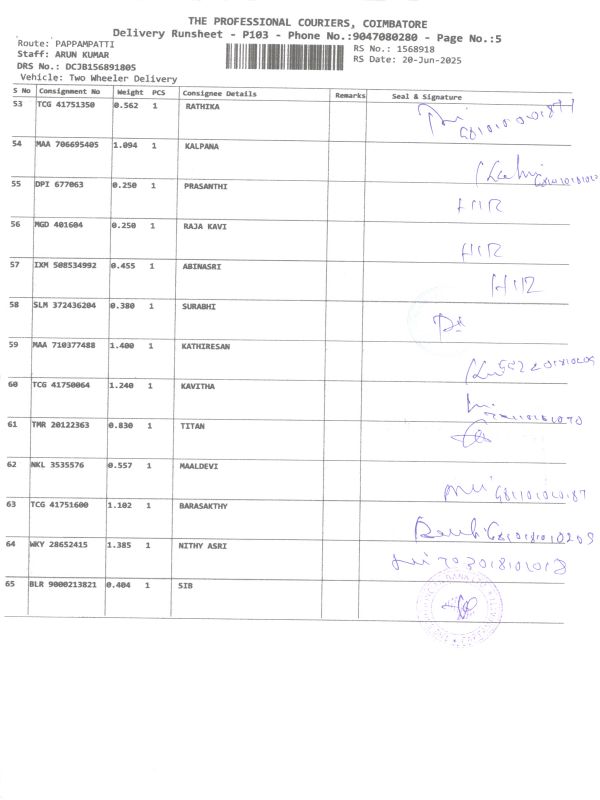 THE PROFESSIONAL COURIERS, COIMBATORE
Delivery Runsheet - P103 - Phone No.:9047080280 - Page No.:5
Route: PAPPAMPATTI
Staff: ARUN KUMAR
DRS No.: DCJB156891805
Vehicle: Two Wheeler Delivery
RS No.: 1568918
RS Date: 20-Jun-2025
S No Consignment No Weight PCS Consignee Details Remarks Seal & Signature
53 TCG 41751350 0.562 1 RATHIKA
54 MAA 706695405 1.094 1 KALPANA
55 DPI 677063 0.250 1 PRASANTHI
56 MGD 401604 0.250 1 RAJA KAVI
57 IXM 508534992 0.455 1 ABINASRI
58 SLM 372436204 0.380 1 SURABHI
59 MAA 710377488 1.400 1 KATHIRESAN
60 TCG 41750064 1.240 1 KAVITHA
61 TMR 20122363 0.830 1 TITAN
62 NKL 3535576 0.557 1 MAALDEVI
63 TCG 41751600 1.102 1 BARASAKTHY
64 WKY 28652415 1.385 1 NITHY ASRI
65 BLR 9000213821 0.404 1 SIB